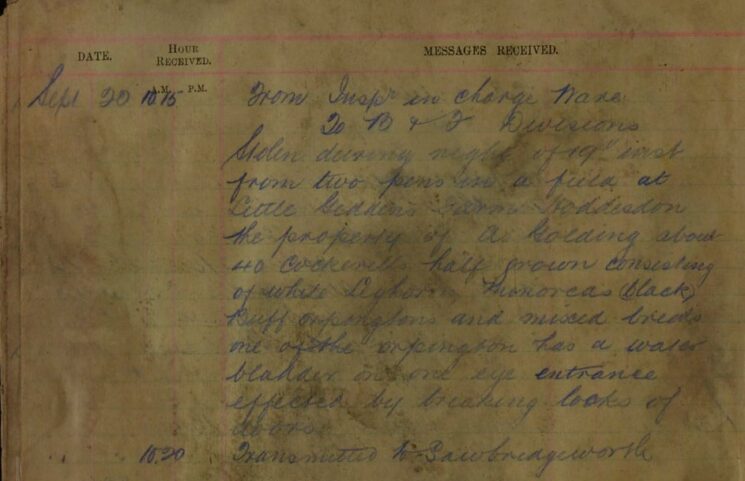 DATE. HOUR RECEIVED. MESSAGES RECEIVED.
A.M. - P.M.
Sept 20 10 15 From Inspr in charge Ware
To B & F Divisions
Stolen during night of 19th inst
from two pens in a field at
Little Geddins Farm Hoddesdon
the property of A. Golding about
40 Cockerells half grown consisting
of white Leghorns Minorcas (black)
Buff orpingtons and mixed breeds
one of the orpington has a water
bladder on one eye entrance
effected by breaking locks of
doors
" 10.20 Transmitted to Sawbridgeworth